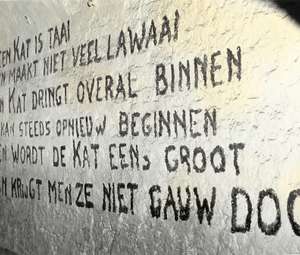 EEN KAT IS TAAI
EN MAAKT NIET VEEL LAWAAI
EEN KAT DRINGT OVERAL BINNEN
KAN STEEDS OPNIEUW BEGINNEN
EN WORDT DE KAT EENS GROOT
DAN KRIJGT MEN ZE NIET GAUW DOO